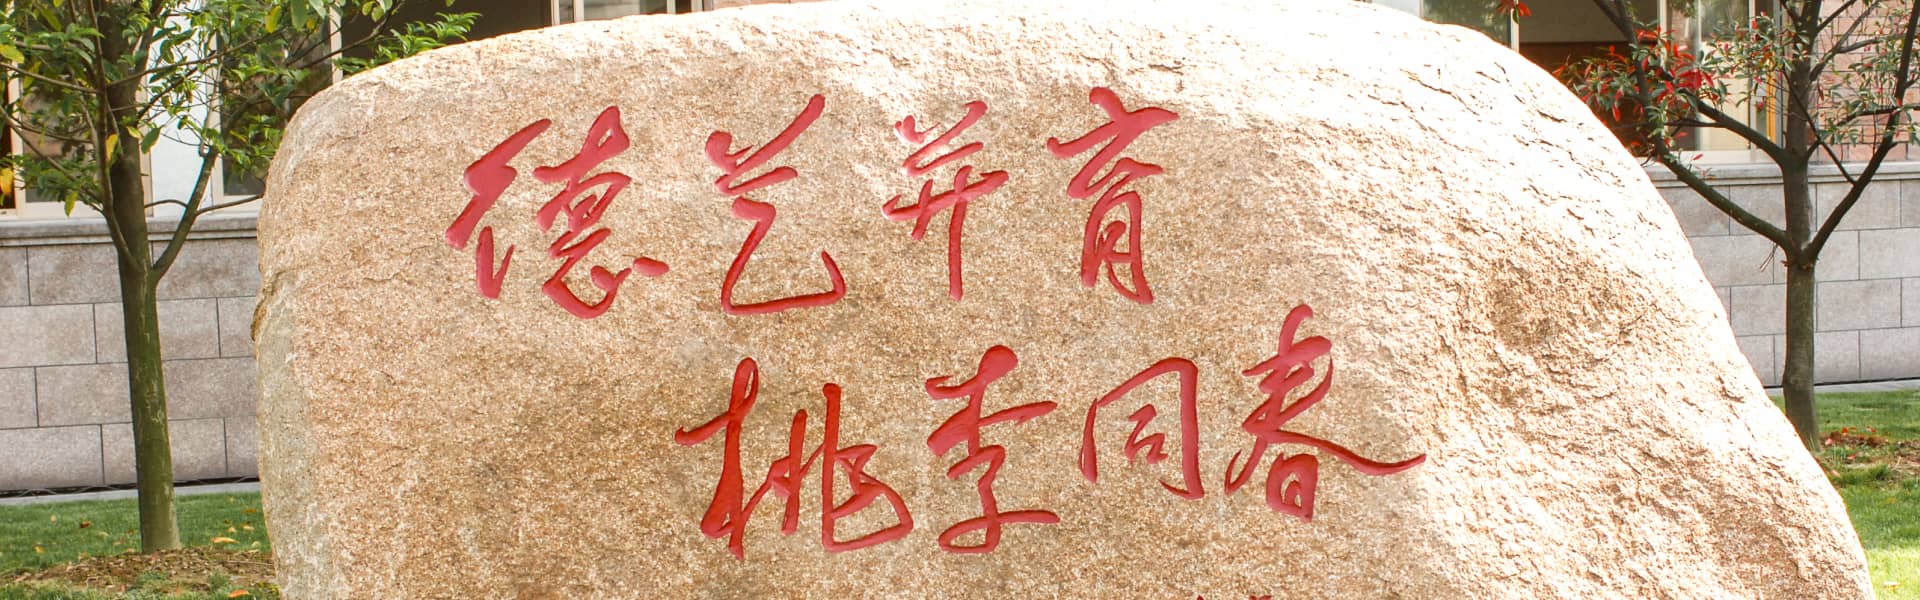 德艺并育
桃李同春